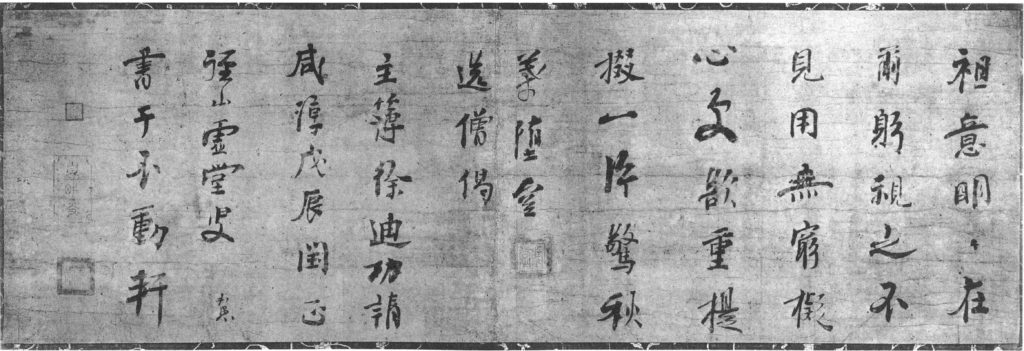 祖意明〻在
爾躬視之不
見用無窮擬
心更欲重提
掇一片驚秋
葉墮空
送僧偈
主簿徐迪功請
咸淳戊辰閏正
徑山虛堂叟 智愚
書于不動軒